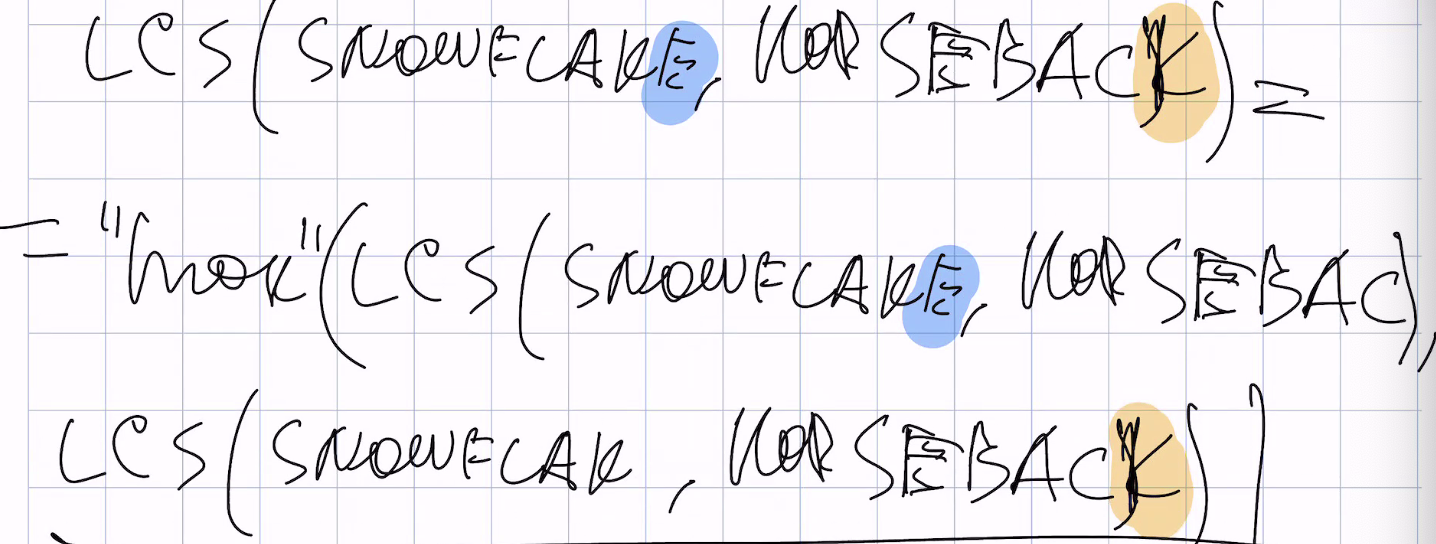 LCS(SNOWFCAKE, HORSEBACK) =
= "max"(LCS(SNOWFCAKE, HORSEBAC),
LCS(SNOWFCAK, HORSEBACK))